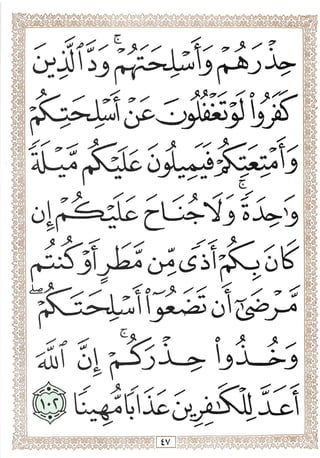 حِذْرَهُمْ وَأَسْلِحَتَهُمْ ۗ وَدَّ ٱلَّذِينَ
كَفَرُوا۟ لَوْ تَغْفُلُونَ عَنْ أَسْلِحَتِكُمْ
وَأَمْتِعَتِكُمْ فَيَمِيلُونَ عَلَيْكُم مَّيْلَةً
وَٰحِدَةً ۚ وَلَا جُنَاحَ عَلَيْكُمْ إِن
كَانَ بِكُمْ أَذًى مِّن مَّطَرٍ أَوْ كُنتُم
مَّرْضَىٰٓ أَن تَضَعُوٓا۟ أَسْلِحَتَكُمْ ۖ
وَخُذُوا۟ حِذْرَكُمْ ۗ إِنَّ ٱللَّهَ
أَعَدَّ لِلْكَٰفِرِينَ عَذَابًا مُّهِينًا ١٠٢
٤٧